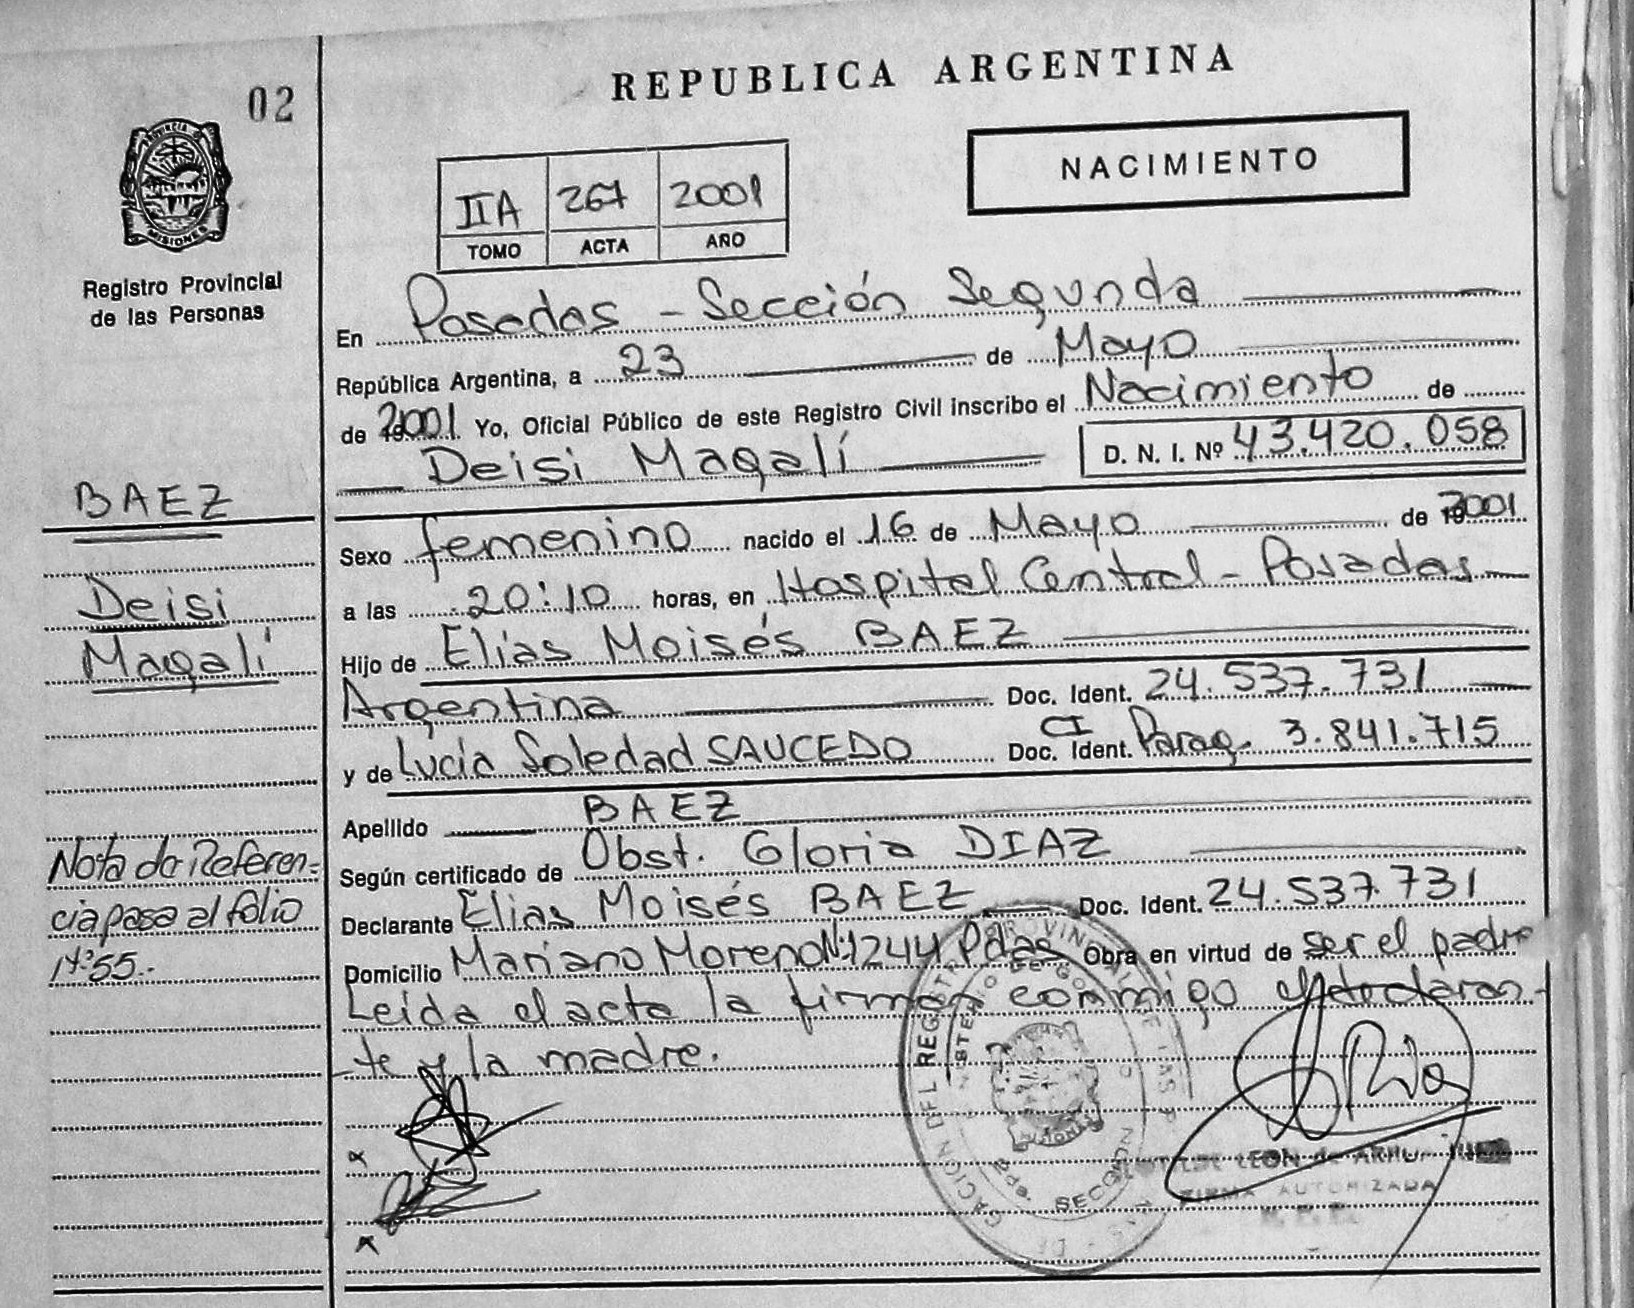 REPUBLICA ARGENTINA
02
NACIMIENTO
PROVINCIA DE
MISIONES
Registro Provincial
de las Personas
IIA 267 2001
TOMO ACTA AÑO
En Posadas - Sección Segunda
República Argentina, a 23 de Mayo
de 2001 Yo, Oficial Público de este Registro Civil inscribo el Nacimiento de
Deisi Magalí D. N. I. Nº 43.420.058
BAEZ
Deisi
Magalí
Sexo femenino nacido el 16 de Mayo de 2001
a las 20:10 horas, en Hospital Central - Posadas
Hijo de Elías Moisés BAEZ
Argentina Doc. Ident. 24.537.731
y de Lucía Soledad SAUCEDO Doc. Ident. CI Parag. 3.841.715
Apellido BAEZ
Según certificado de Obst. Gloria DIAZ
Declarante Elías Moisés BAEZ Doc. Ident. 24.537.731
Domicilio Mariano Moreno Nº 1244 Pdas Obra en virtud de ser el padre
Leída el acta la firman conmigo el declaran-
te y la madre.
Nota de Referen-
cia pasa al folio
Nº 55.-
SECCION
LEON de
FIRMA AUTORIZADA